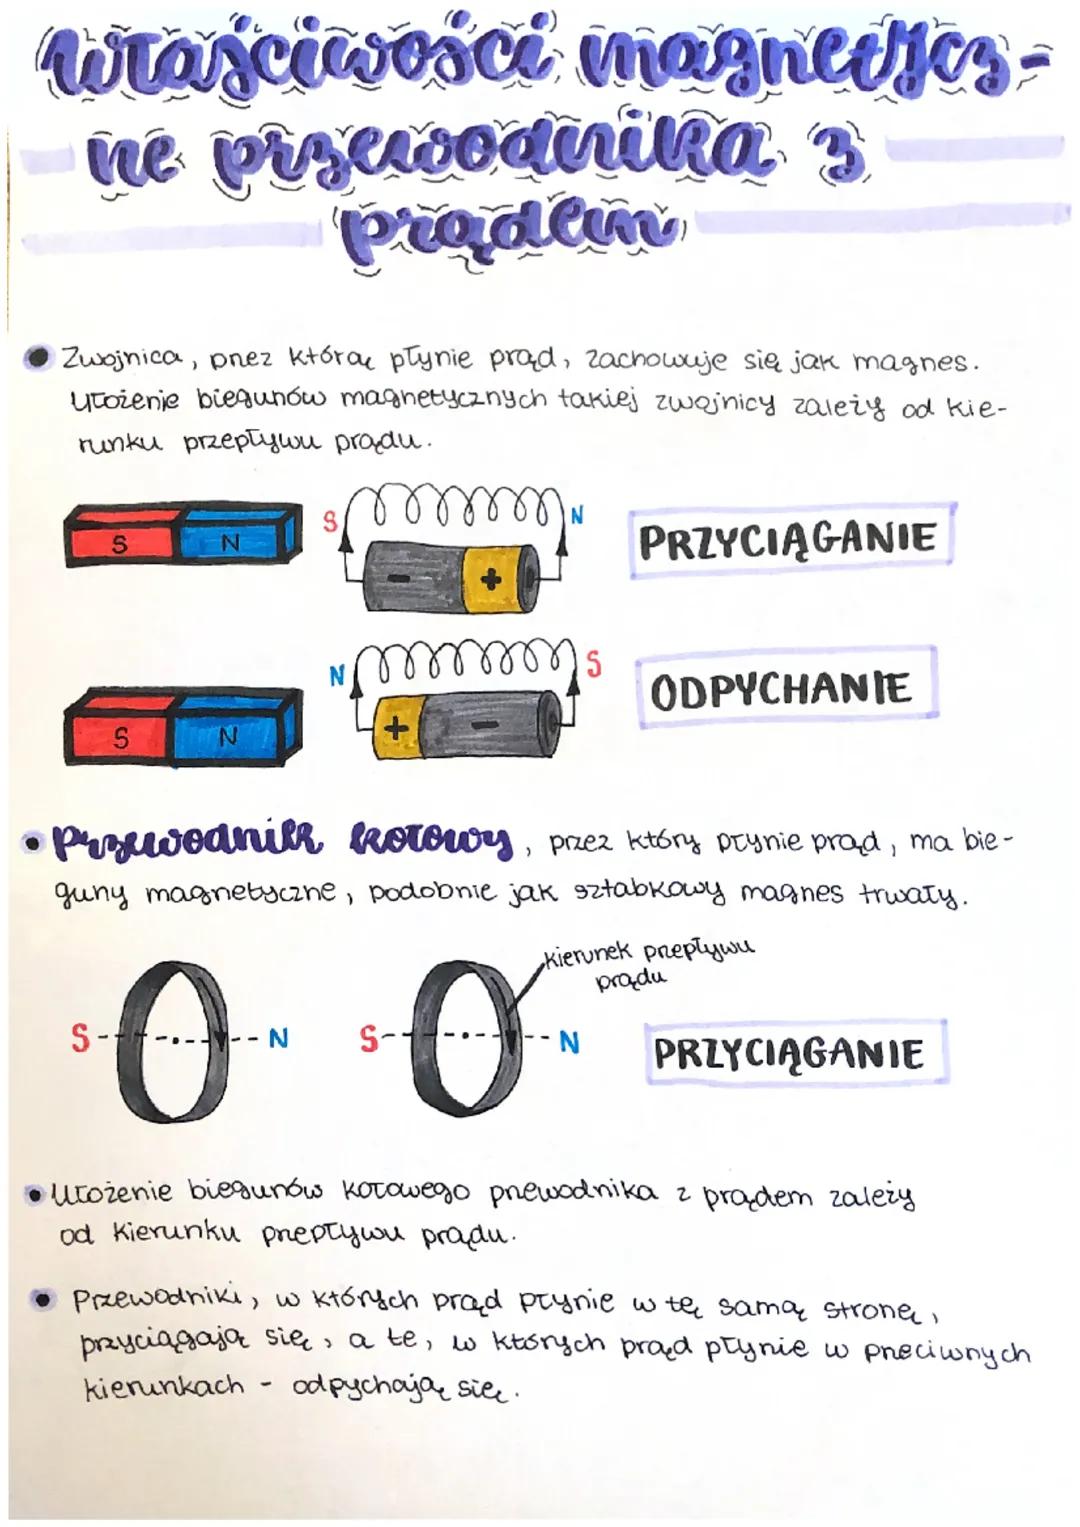 Właściwości magnetycz-
ne przewodnika z
prądem
Zwojnica, przez którą płynie prąd, zachowuje się jak magnes.
Ułożenie biegunów magnetycznych takiej zwojnicy zależy od kie-
runku przepływu prądu.
S N S N PRZYCIĄGANIE
- +
N S ODPYCHANIE
S N + -
Przewodnik kołowy, przez który płynie prąd, ma bie-
guny magnetyczne, podobnie jak sztabkowy magnes trwały.
kierunek przepływu
prądu
S N S N PRZYCIĄGANIE
Ułożenie biegunów kołowego przewodnika z prądem zależy
od kierunku przepływu prądu.
Przewodniki, w których prąd płynie w tę samą stronę,
przyciągają się, a te, w których prąd płynie w przeciwnych
kierunkach - odpychają się.